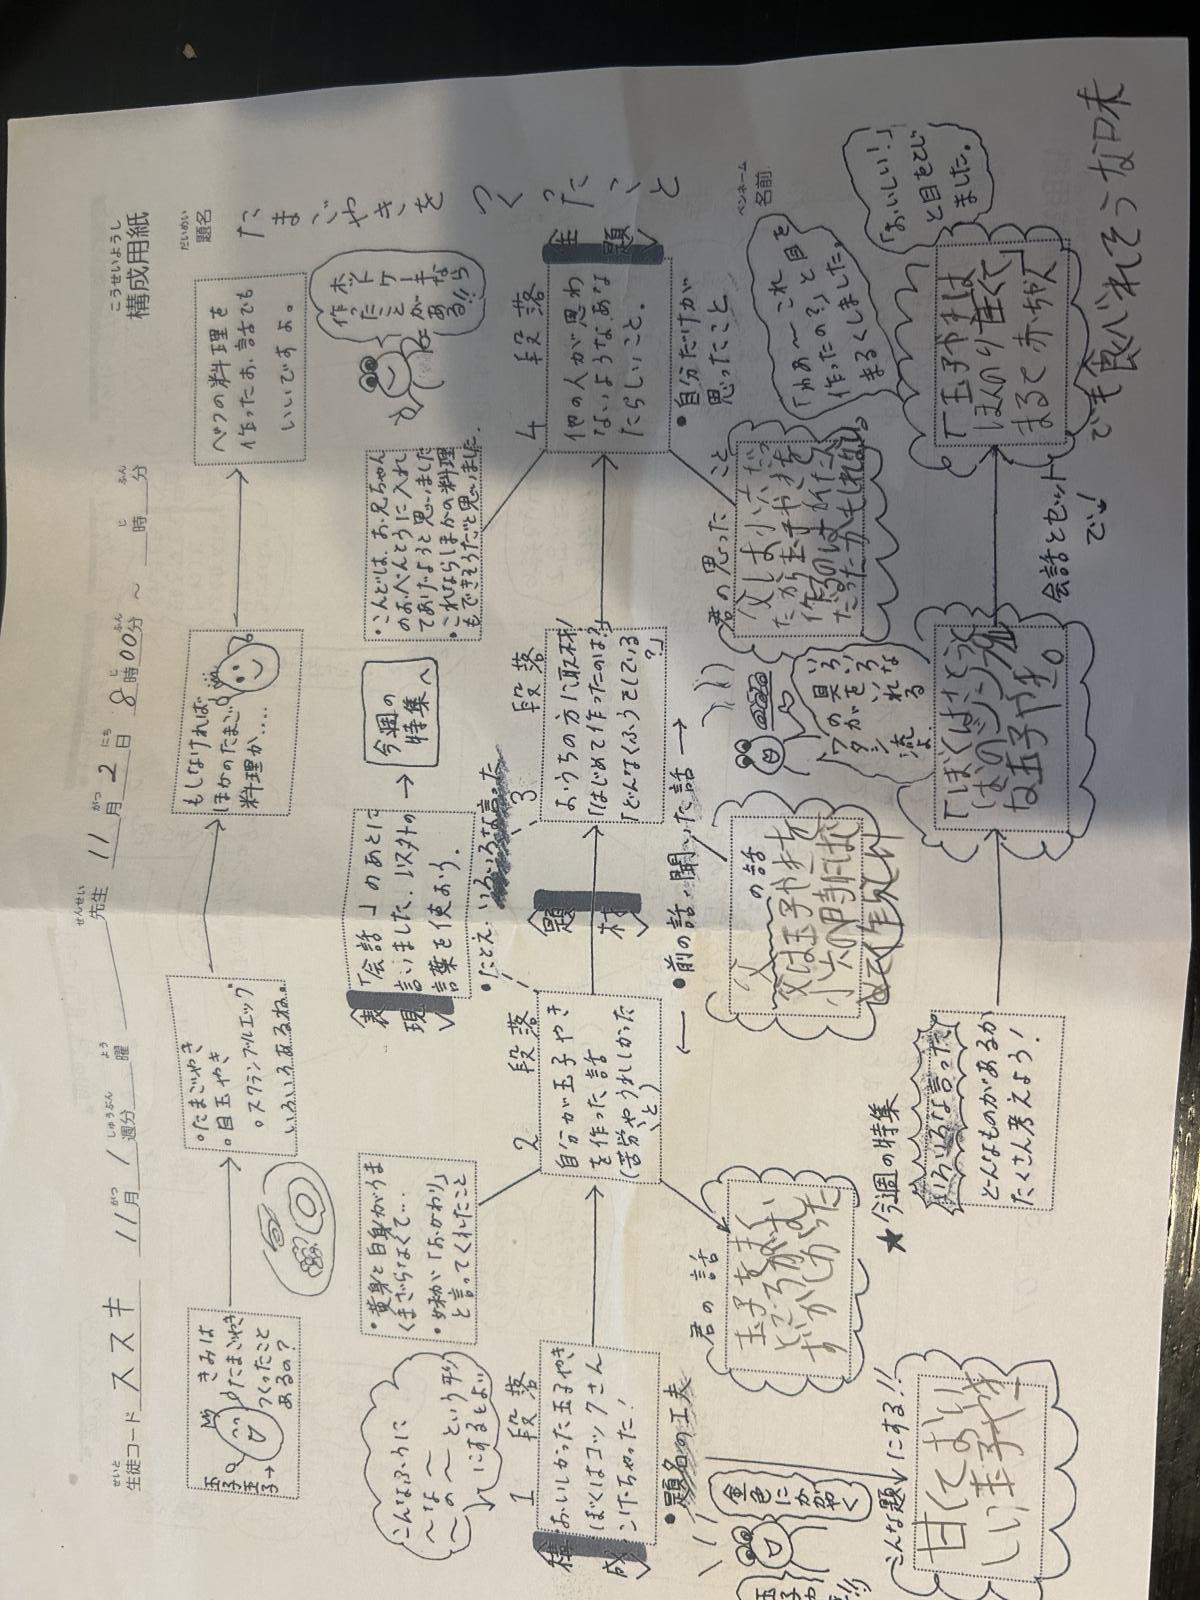 こうせいようし
構成用紙
だいめい
題名
たまごやきを
つくったこと
ペンネーム
名前
せいと
生徒コード ススキ 11月1週分 曜 先生 11月2日 8時00分 〜 時 分
がつ しゅうぶん よう せんせい がつ にち じ ふん じ ふん
きみは
たまごやき
つくったこと
あるの?
玉子玉子→
・たまごやき
・目玉やき
・スクランブルエッグ
いろいろあるね。
もしなければ
ほかのたまご
料理か....
べつの料理を
作ったお話でも
いいですよ。
ホットケーキなら
作ったことがあるよ!!
こんなふうに
〜な〜
〜の〜 という形
にするとよい
・黄身と白身がうま
くまざらなくて...
・妹が「おかわり」
と言ってくれたこと
表現
「会話」のあとは
言いました、以外の
言葉を使おう。
・たとえ
いろいろな言った
→
今週の
特集へ
・こんどは、お兄ちゃん
のおべんとうに入れ
てあげようと思いました
・これならほかの料理
もできそうだと思いました。
構成
1段落
おいしかった玉子やき
ぼくはコックさん
こげちゃった!
2段落
自分が玉子やき
を作った話
(苦労やうれしかった
こと)
題材
3段落
おうちの方に取材!
「はじめて作ったのは?」
「どんなくふうをしている
?」
4段落
他の人が思わ
ないようなあな
たらしいこと、
主題
・題名の工夫
金色にかがやく
君の話
玉子をまくと
ころがむ
ずかしかった
←・前の話・聞いた話→
父の話
父は玉子やきを
小六の時には
じめて作った
ワタシ流よ
君の思ったこと
父は小六だっ
たから玉子やきを
作るのは
だったかもしれない
・自分だけが
思ったこと
こんな題にする!!
甘くておい
しい玉子やき
★今週の特集
いろいろな言った
どんなものがあるか
たくさん考えよう!
「ぼくはさとうと
な玉子やき。
会話とセット
でね!
「玉子やきは
ほんのり甘くて」
まるで赤ちゃん
でも食べれそうな味
「わぁ〜これ
作ったの?」と目を
まるくしました。
「おいしい!」
と目をとじ
ました。